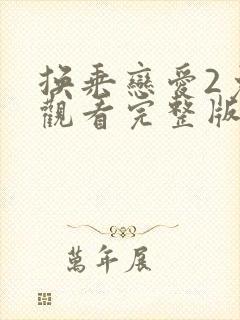 換乘戀愛2
觀看完整版
萬年展